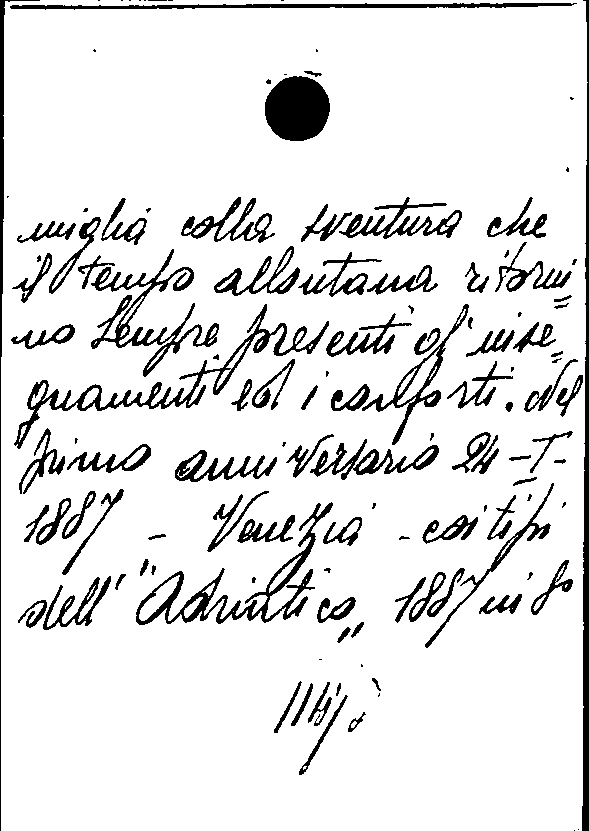 miglia colla sventura che
il tempo allontana ritorni=
no sempre presenti gl'inse=
gnamenti ed i conforti. Nel
primo anniversario 24-I-
1887 - Venezia - coi tipi
dell'"Adriatico„ 1887 in 8°